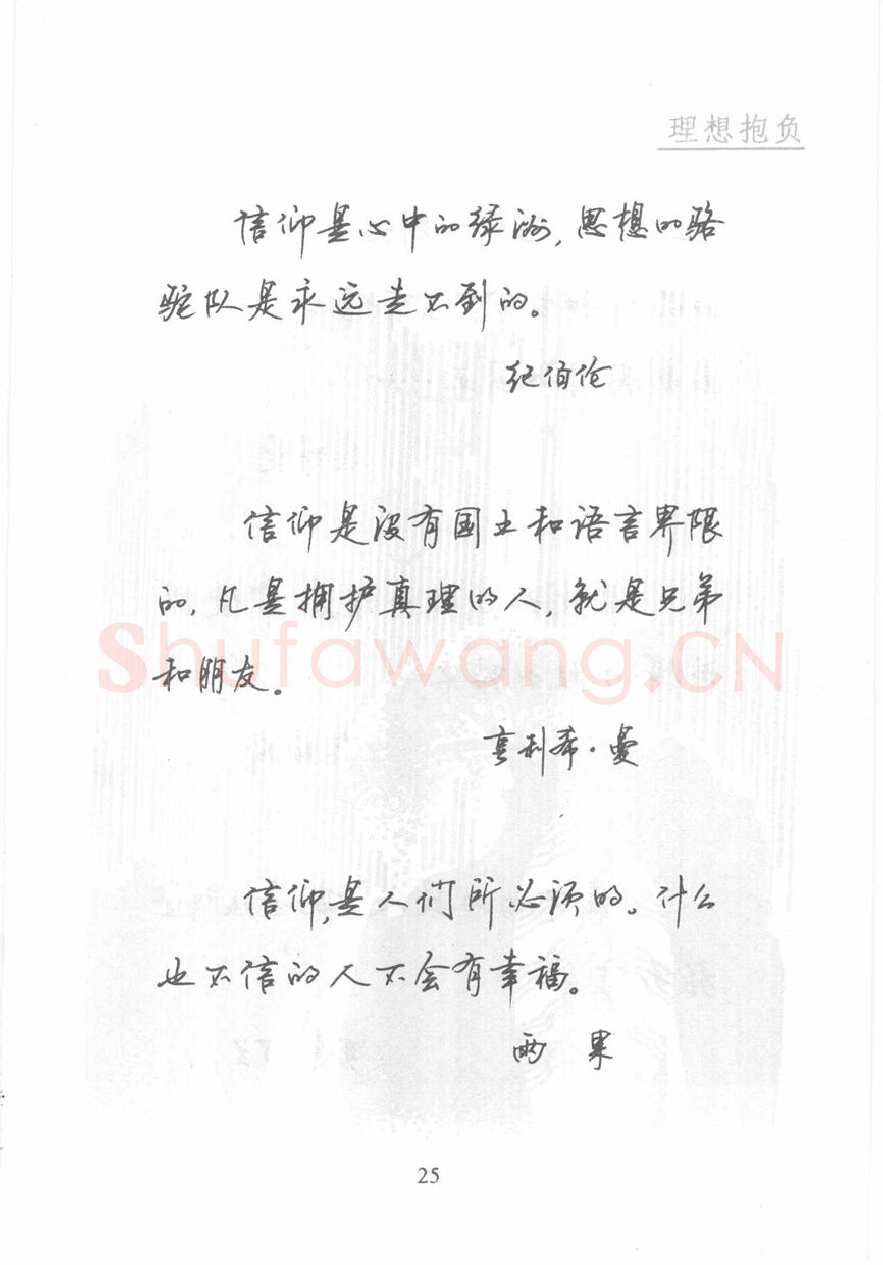 理想抱负
信仰是心中的绿洲,思想的骆
驼队是永远走不到的。
纪伯伦
信仰是没有国土和语言界限
的,凡是拥护真理的人,就是兄弟
和朋友。
亨利希·曼
信仰,是人们所必须的。什么
也不信的人不会有幸福。
雨果
25
Shufawang.CN